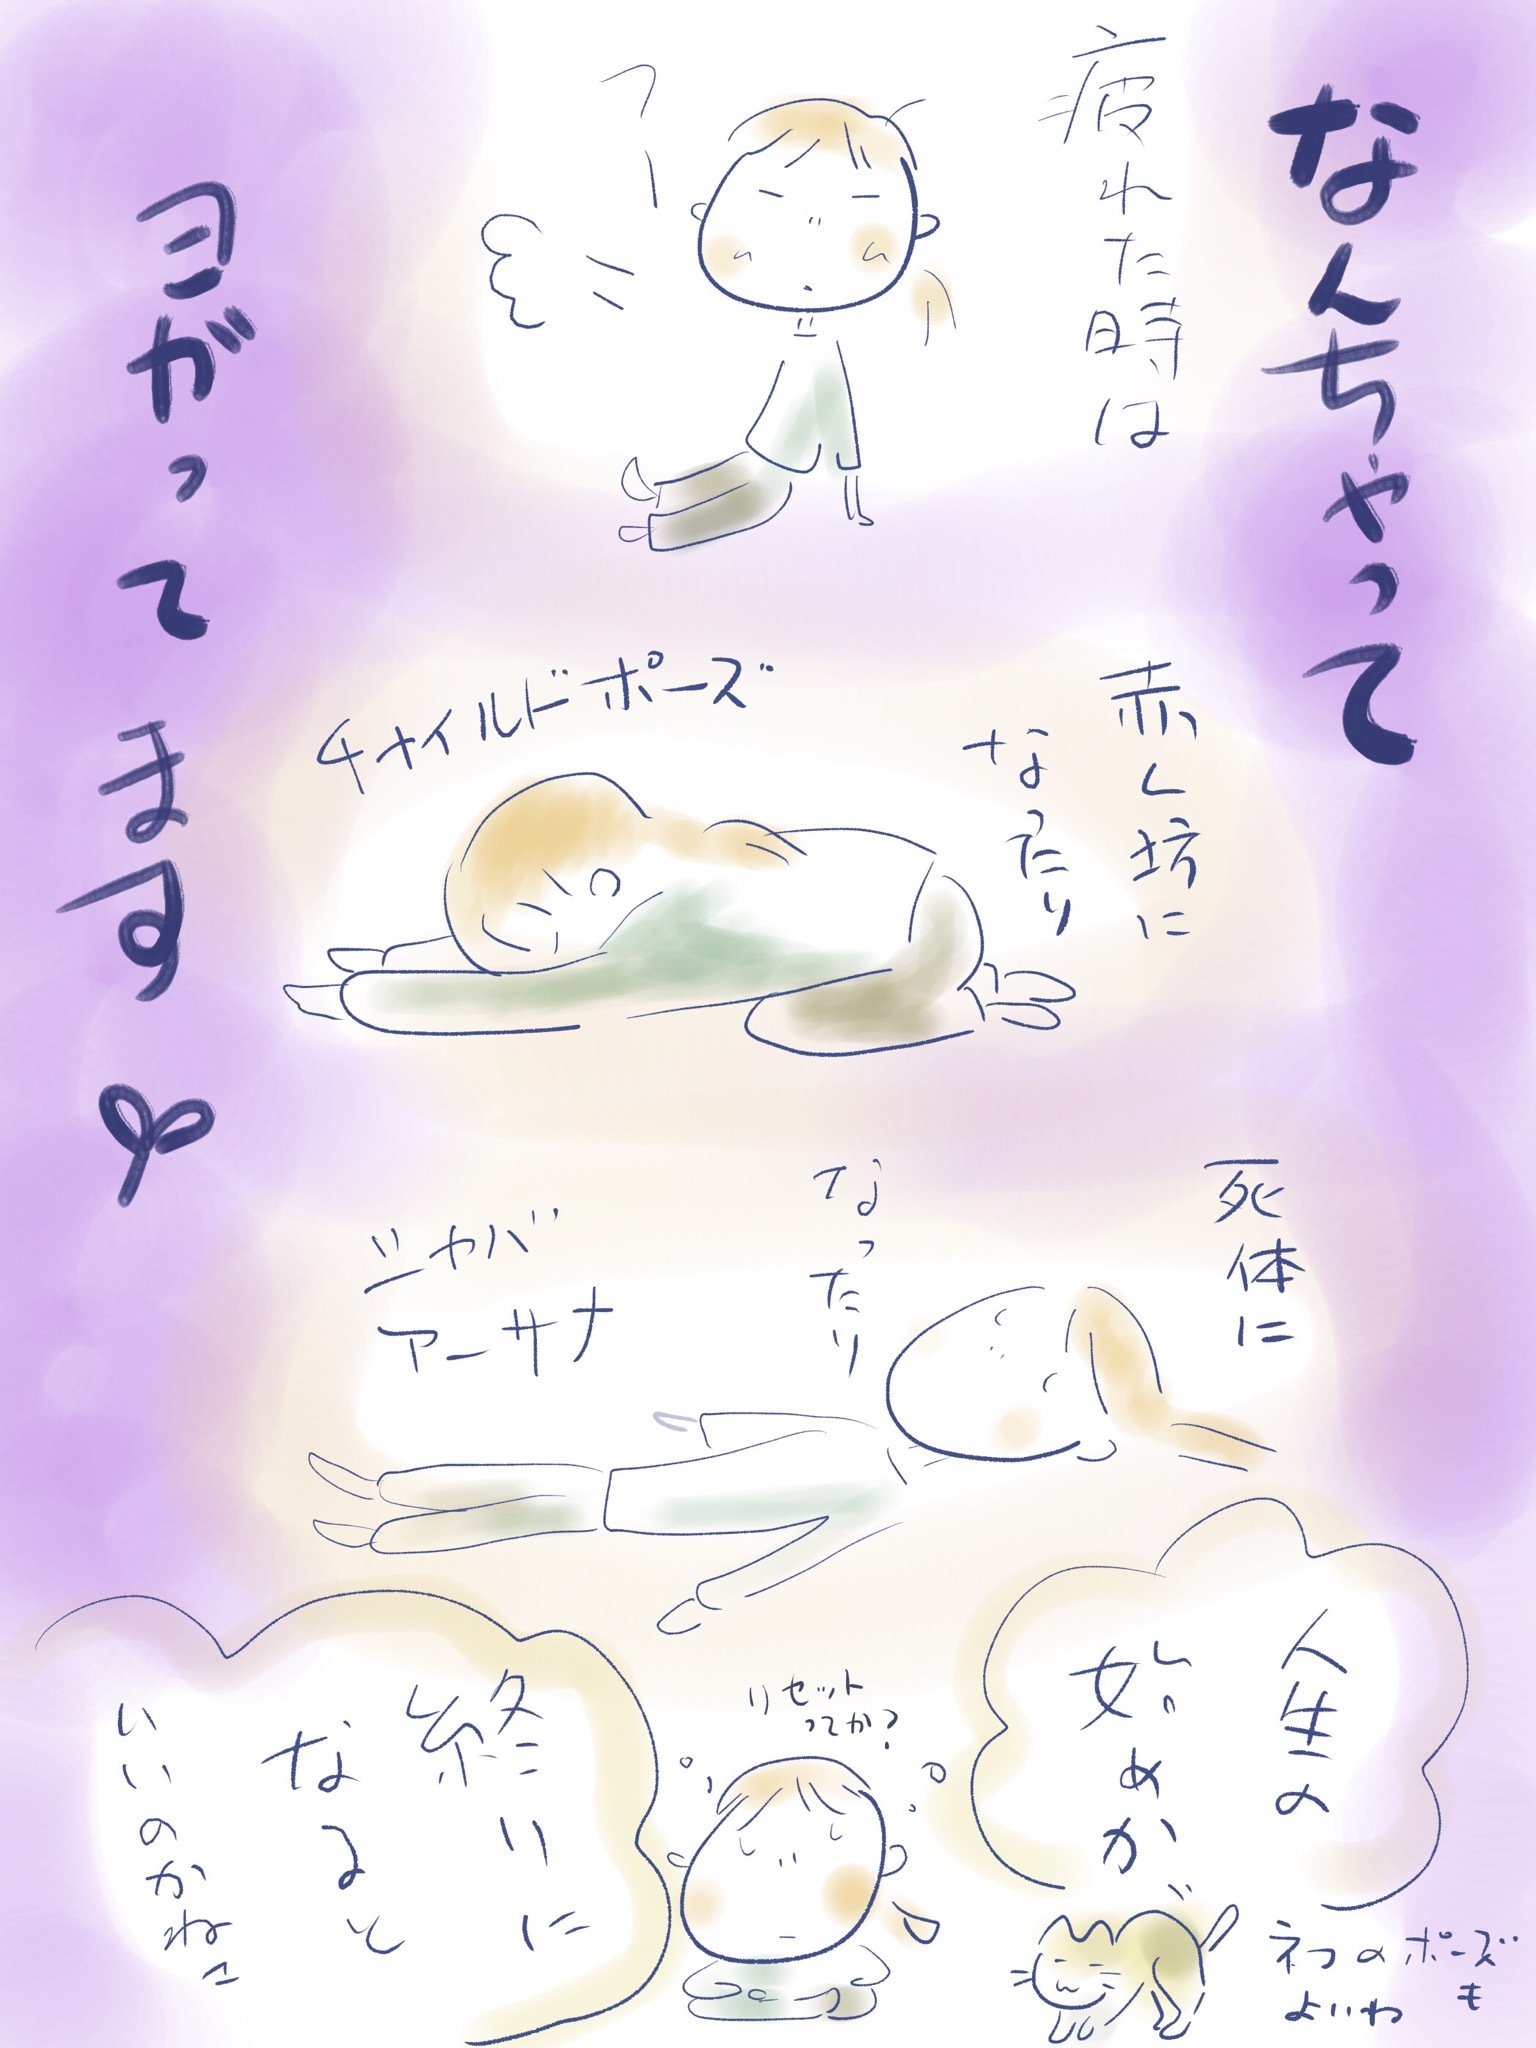 なんちゃって
ヨガってます
疲れた時は
フー
赤ん坊に
なったり
チャイルドポーズ
死体に
なったり
シャバ
アーサナ
人生の
始めか
終りに
なると
いいのかね
リセット
ってか?
ネコのポーズ
も
よいわ